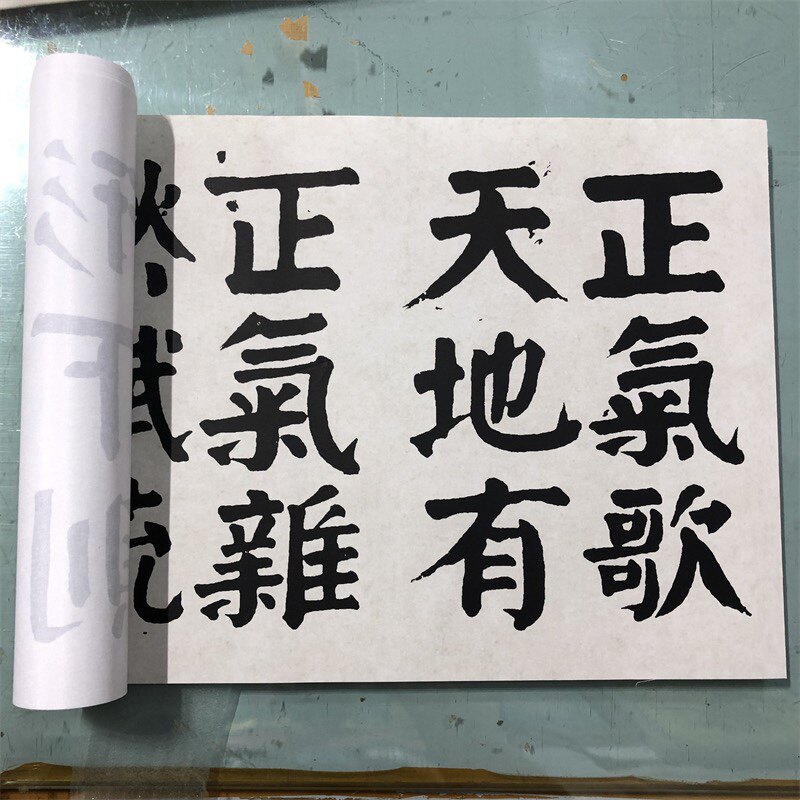 正氣歌
天地有
正氣雜